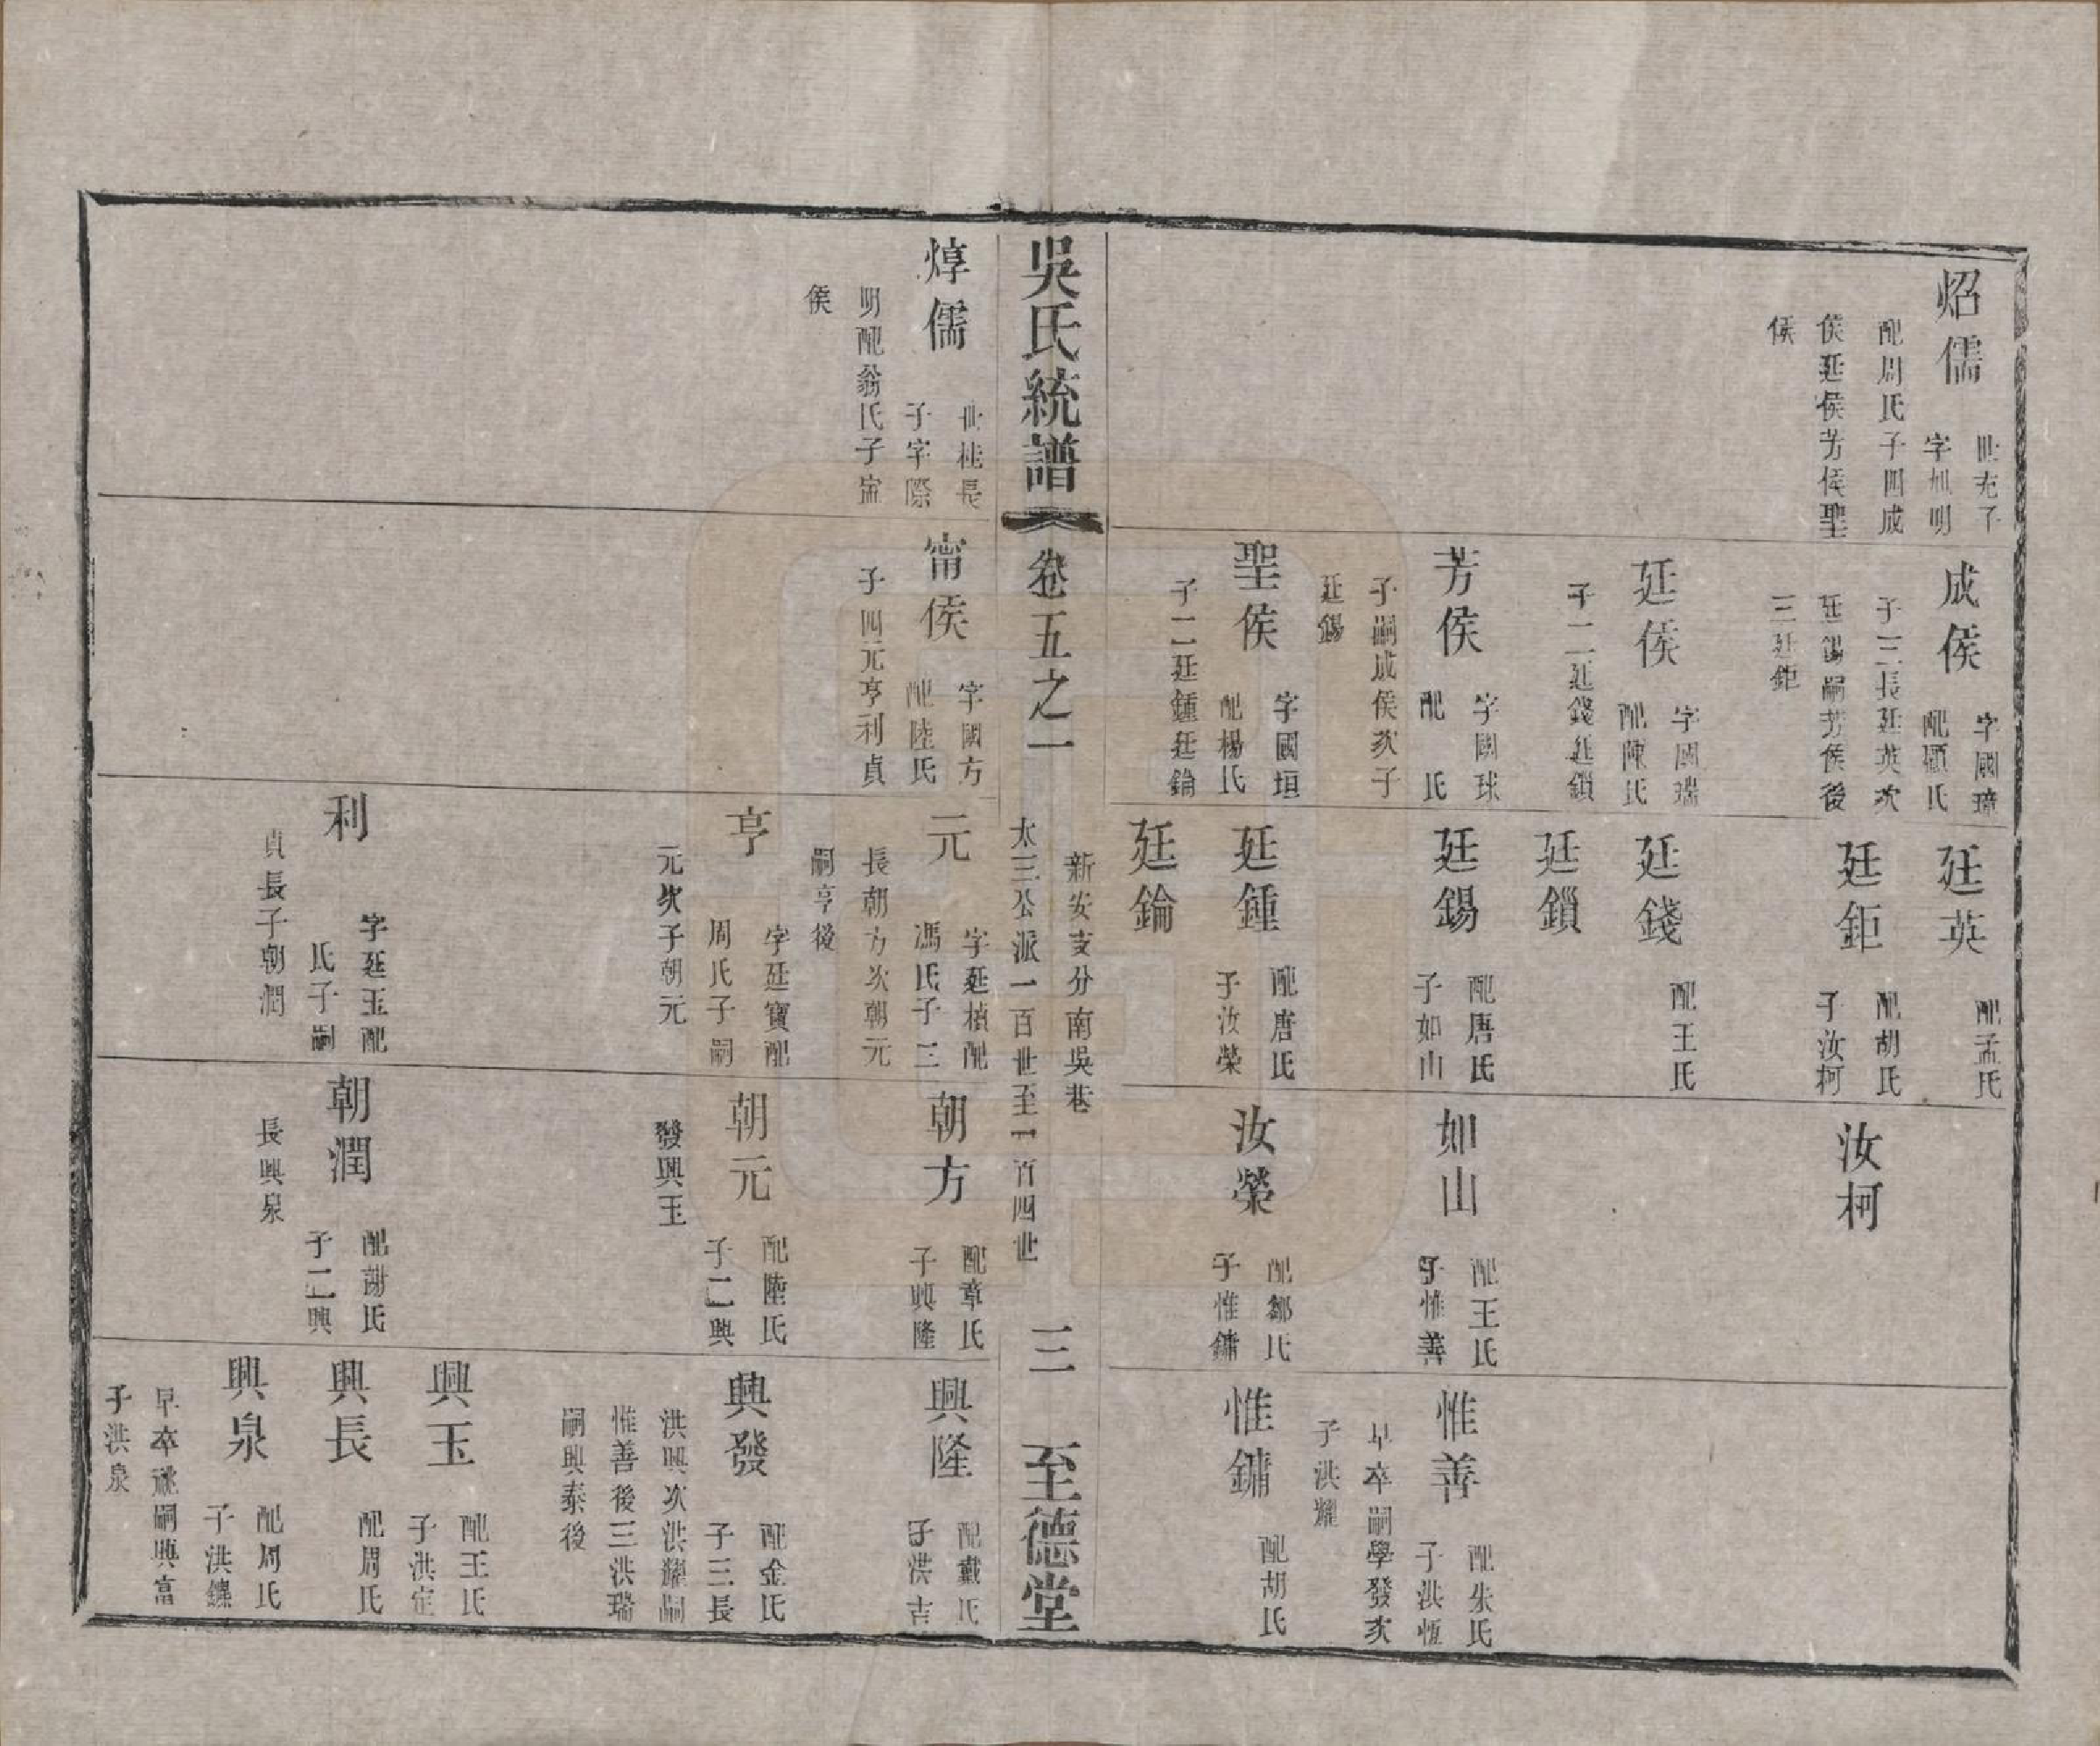 炤儒
世充子
字旭明
配周氏子四成
侯廷侯芳侯聖
侯
成侯
字國璋
配顧氏
子三長廷英次
廷錫嗣芳侯後
三廷鉅
廷侯
字國瑞
配陳氏
子二廷錢廷鎖
芳侯
字國球
配 氏
子嗣成侯次子
廷錫
聖侯
字國垣
配楊氏
子二廷鍾廷錀
廷英
配孟氏
廷鉅
配胡氏
子汝柯
廷錢
配王氏
廷鎖
廷錫
配唐氏
子如山
廷鍾
配唐氏
子汝榮
廷錀
汝柯
如山
配王氏
子惟善
汝榮
配鄒氏
子惟鏞
惟善
配朱氏
子洪恆
早卒嗣學發次
子洪耀
惟鏞
配胡氏
吳氏統譜
卷五之一
新安支分南吳巷
太三公派一百世至一百四世
三
至德堂
焞儒
世桂長
子字際
明配翁氏子甯
侯
甯侯
字國方
配陸氏
子四元亨利貞
元
字廷楨配
馮氏子三
長朝方次朝元
嗣亨後
亨
字廷寶配
周氏子嗣
元次子朝元
利
字廷玉配
氏子嗣
貞長子朝潤
朝方
配章氏
子興隆
朝元
配陸氏
子二興
發興玉
朝潤
配謝氏
子二興
長興泉
興隆
配戴氏
子洪吉
興發
配金氏
子三長
洪興次洪耀嗣
惟善後三洪瑞
嗣興泰後
興玉
配王氏
子洪定
興長
配周氏
興泉
配周氏
子洪鑣
早卒祧嗣興富
子洪泉